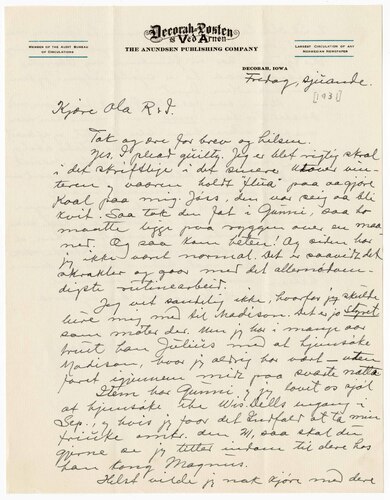 Decorah-Posten
& Ved Arnen
THE ANUNDSEN PUBLISHING COMPANY
MEMBER OF THE AUDIT BUREAU
OF CIRCULATIONS
LARGEST CIRCULATION OF ANY
NORWEGIAN NEWSPAPER
DECORAH, IOWA
Fredag, sjuande.
[193]
Kjöre Ola R. I.
Tak og ære for brev og hilsen.
Yes, I plead guilty. Jeg er blet rigtig skral
i det skriftlige i det sinere. Utover vin-
teren og vaaren holdt flua paa aagjöre
Kaal paa mig. Jøss, den var seig aa bli
kvit. Saa tok den fat i Gunni, saa ho
maatte ligge paa ryggen over en maa-
ned. Og saa kom heten! Og siden har
jeg ikke vært normal. Det er saavidt det
skrakler og gaar med det allernødven-
digste rutinearbeid.
Jeg vet sandelig ikke, hvorfor jeg skulde
bære mig med til Madison. Det er jo Styret
som møter der. Men jeg har i mange aar
truet han Julius med at hjemsøke
Madison, hvor jeg aldrig har vært — uten
faret igjennem midt paa svarte natta
Item har Gunni og jeg lovet os sjøl
at hjemsøke the Wis. Dells engang i
Sep., og hvis jeg faar det Indfald at ta min
friuke omkr. den 21, saa skal du
gjerne se jeg titter indom til dere hos
han kong Magnus.
Helst vilde jeg nok kjøre med dere